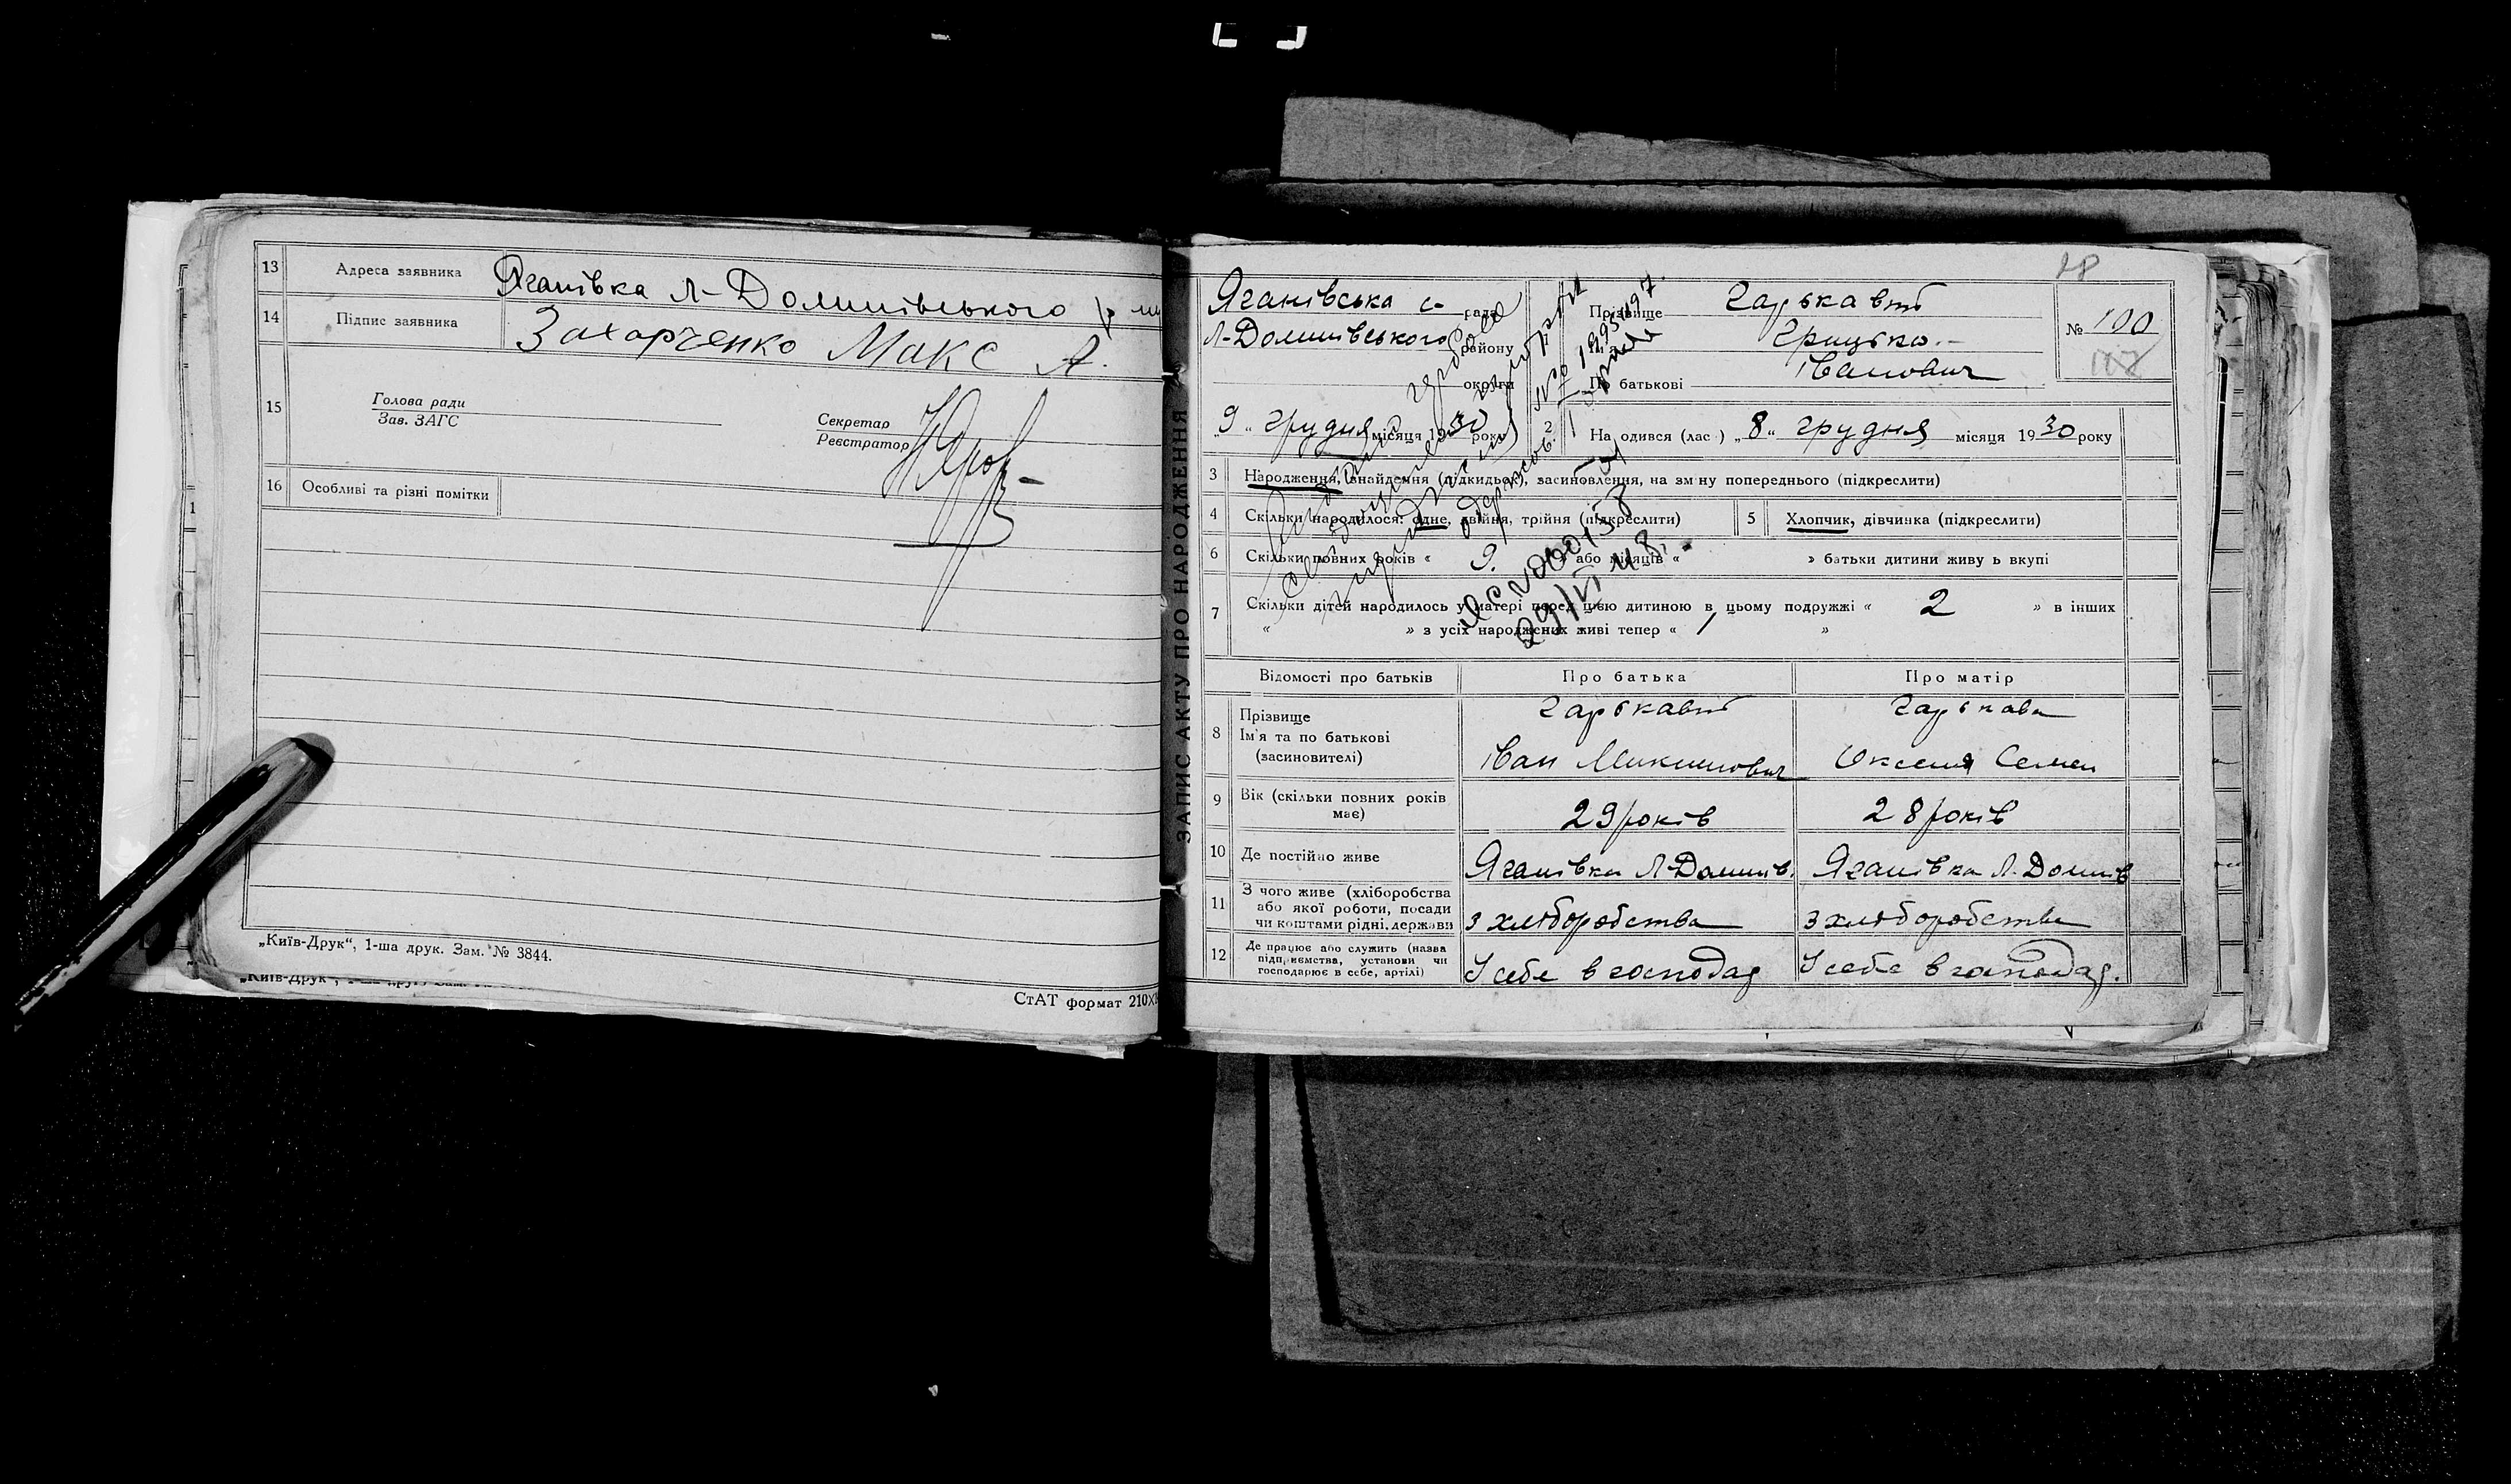 13 Адреса заявника Яганівка Л-Долинівського
14 Підпис заявника Захарченко Макс А.
15 Голова ради
Зав. ЗАГС
Секретар
Реєстратор
16 Особливі та різні помітки
„Київ-Друк“, 1-ша друк. Зам. № 3844.
СтАТ формат 210Х
ЗАПИС АКТУ ПРО НАРОДЖЕННЯ
28
Яганівська с- рада
Л-Долинівського району
округи
„9“ грудня місяця 1930 року
1 Прізвище Гарькавий
Ім'я Грицько
По батькові Іванович
№ 100
2 На одився (лас) „8“ грудня місяця 1930 року
3 Народження, знайдення (підкидьок), засиновлення, на зміну попереднього (підкреслити)
4 Скільки народилося: одне, двійня, трійня (підкреслити)
5 Хлопчик, дівчинка (підкреслити)
6 Скільки повних років « 9. » або місяців « » батьки дитини живу ь вкупі
7 Скільки дітей народилось у матері перед цією дитиною в цьому подружжі « 2 » в інших
« » з усіх народжених живі тепер « 1 »
29/VI 48.
Відомості про батьків Про батька Про матір
8 Прізвище
Ім'я та по батькові
(засиновителі)
Гарькавий
Іван
Гарькава
Оксеня Семен
9 Вік (скільки повних років має) 29 років 28 років
10 Де постійно живе Яганівка Л-Долинів. Яганівка Л. Долинів
11 З чого живе (хліборобства
або якої роботи, посади
чи коштами рідні, держави
з хліборобства з хліборобства
12 Де працює або служить (назва
підприємства, установи чи
господарює в себе, артілі)
У себе в господар У себе в господар.